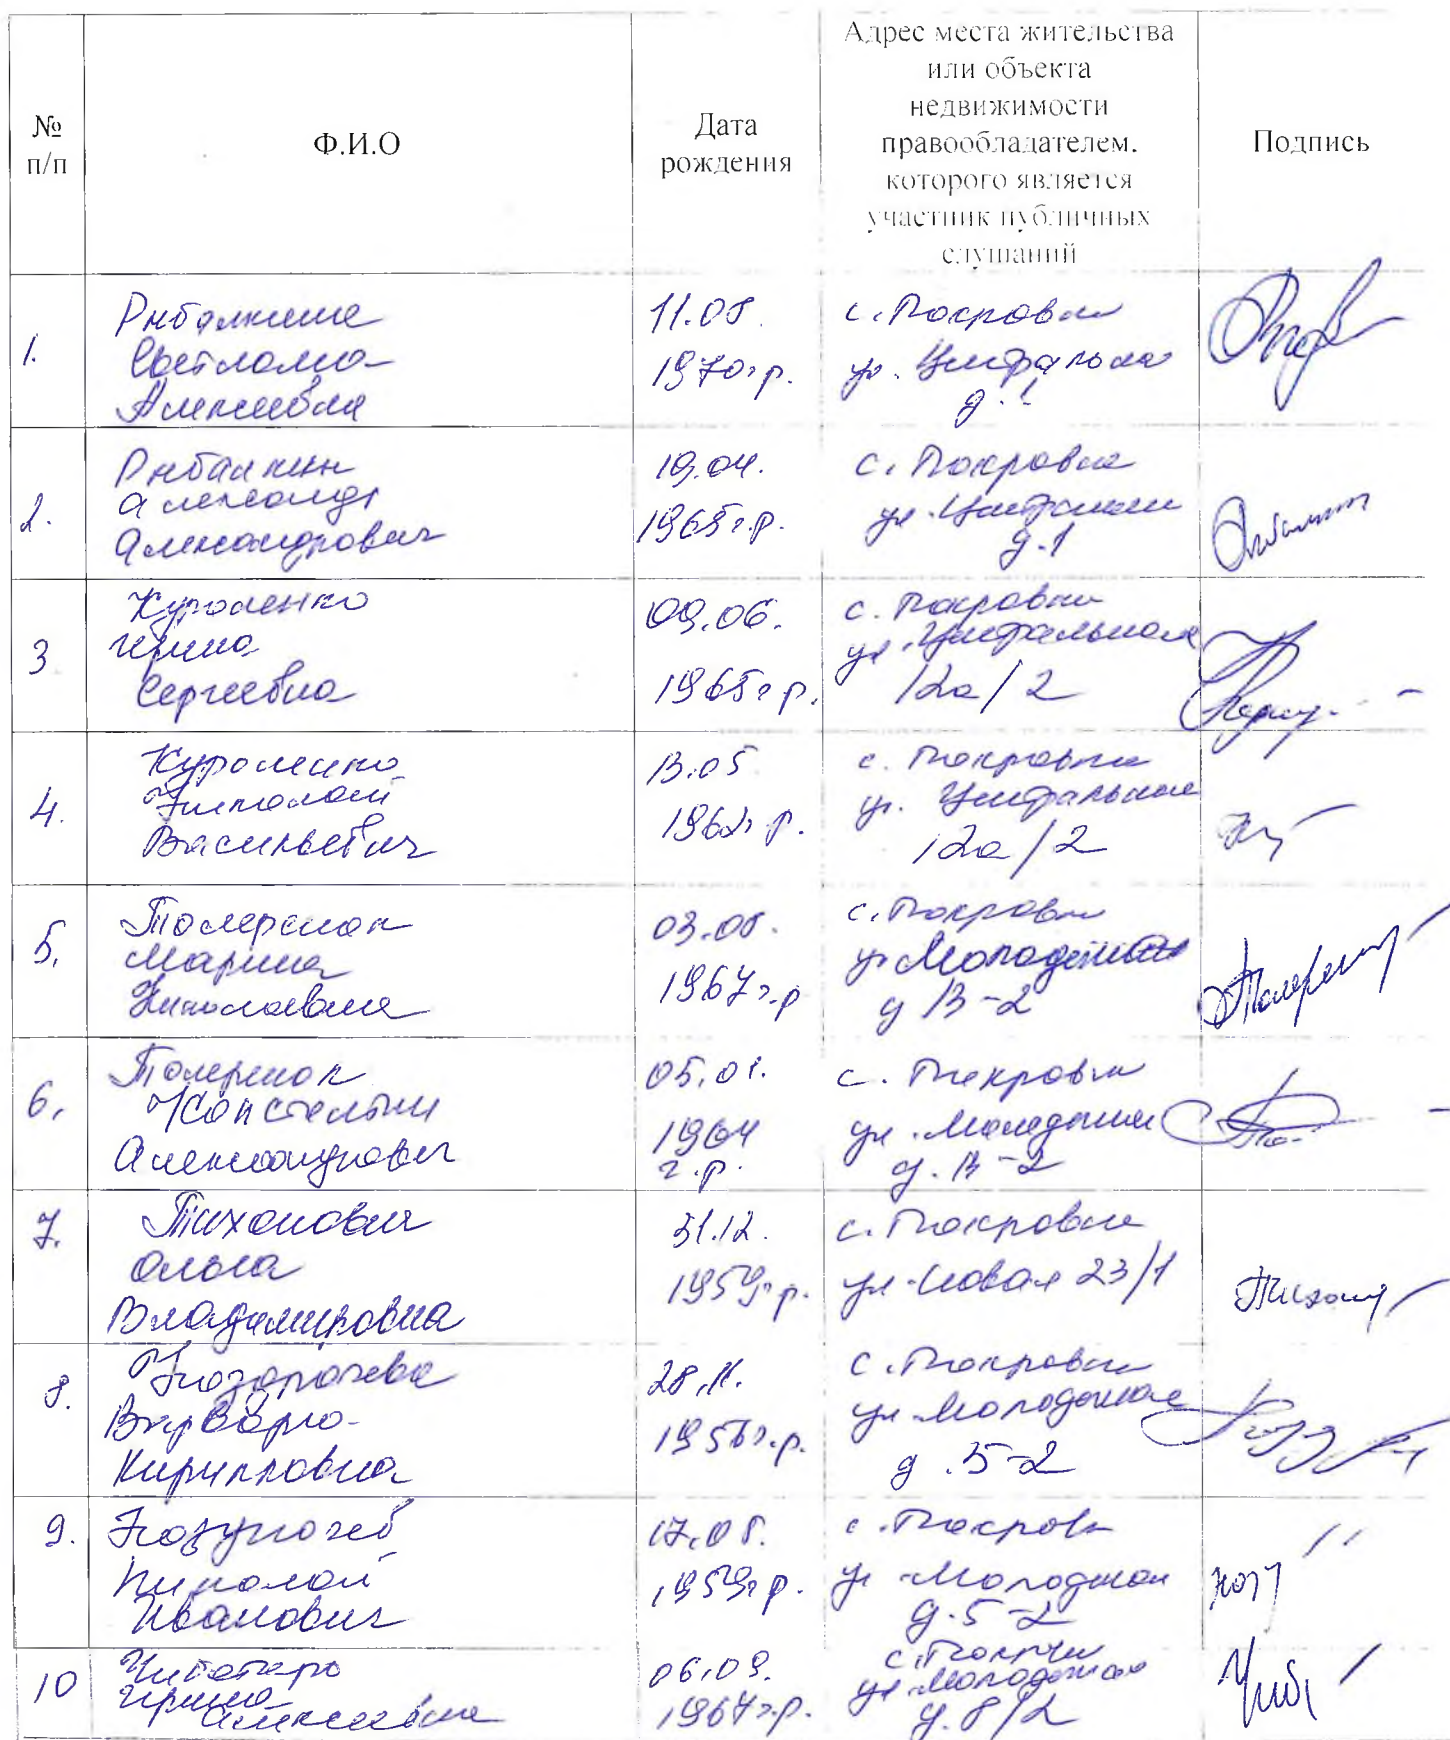 №
п/п
Ф.И.О
Дата
рождения
Адрес места жительства
или объекта
недвижимости
правообладателем.
которого является
участник публичных
слушаний
Подпись
1.
Рыбалкина
Светлана
Алексеевна
11.08.
1970г.р.
с. Покровка
ул. Центральная
д. 1
2.
Рыбалкин
Александр
Александрович
19.04.
1965г.р.
с. Покровка
ул. Центральная
д. 1
3
Куроленко
Ирина
Сергеевна
09.06.
1965г.р.
с. Покровка
ул. Центральная
12а/2
4.
Куроленко
Николай
Васильевич
13.05
1962г.р.
с. Покровка
ул. Центральная
12а/2
5.
Марина
Николаевна
03.08.
1967г.р
с. Покровка
ул Молодежная
д 13-2
6.
Константин
Александрович
05.01.
1964
г.р.
с. Покровка
ул. Молодежная
д. 13-2
7.
Тихонович
Ольга
Владимировна
31.12.
1959г.р.
с. Покровка
ул. Новая 23/1
8.
Варвара
Кирилловна
28.11.
г.р.
с. Покровка
ул. Молодежная
д. 5-2
9.
Николай
Иванович
17.08.
1959г.р.
с. Покровка
ул Молодежная
д. 5-2
10
Чиботарь
Ирина
Алексеевна
06.09.
1967г.р.
с. Покровка
ул. Молодежная
д. 8/2